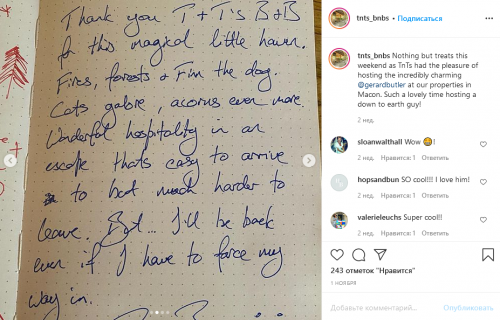 Thank you T+T's B+B
for this magical little haven.
Fires, forests + Finn the dog.
Cats galore acorns even more.
Wonderful hospitality in an
escape thats easy to arrive
to but much harder to
leave. But... I'll be back
even if I have to force my
way in.
tnts_bnbs • Подписаться
tnts_bnbs Nothing but treats this
weekend as TnTs had the pleasure of
hosting the incredibly charming
@gerardbutler at our properties in
Macon. Such a lovely time hosting a
down to earth guy!
2 нед.
sloanwalthall Wow 😀!
2 нед. Нравится: 1 Ответить
hopsandbun SO cool!!! I love him!
2 нед. Нравится: 1 Ответить
valerieleuchs Super cool!!
2 нед. Нравится: 1 Ответить
243 отметок "Нравится"
1 НОЯБРЯ
Добавьте комментарий...
Опубликовать